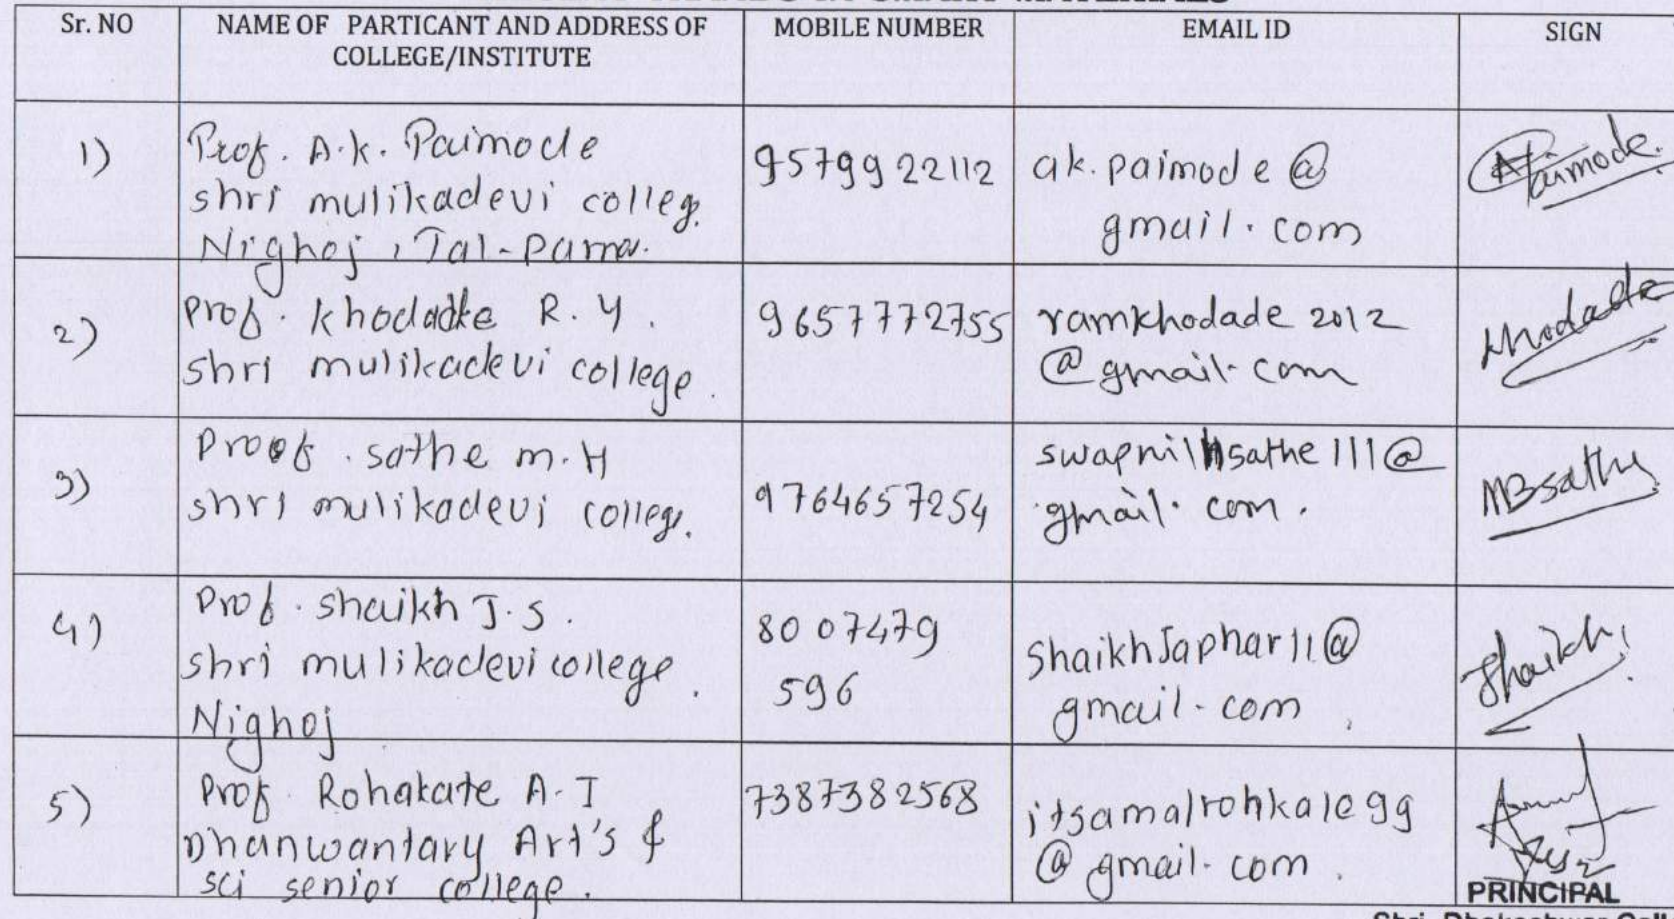 Sr. NO
NAME OF PARTICANT AND ADDRESS OF
COLLEGE/INSTITUTE
MOBILE NUMBER
EMAIL ID
SIGN
1)
Prof. A.K. Paimode
shri mulikadevi colleg.
Nighoj, Tal-
9579922112
ak.paimode@
gmail.com
Paimode.
2)
Prof. Khodade R. Y.
shri mulikadevi college.
9657772755
ramkhodade2012
@gmail.com
Khodade
3)
Proof. sathe m.H
shri mulikadevi colleg.
9764657254
swapnilhsathe111@
gmail.com.
MBsathe
4)
Prof. Shaikh J.S.
shri mulikadevi college.
Nighoj
8007479
596
ShaikhJaphar11@
gmail.com
Shaikh
5)
Prof. Rohakate A.T
Dhanwantary Art's &
sci senior college.
7387382568
itsamalrohkale99
@gmail.com.
PRINCIPAL